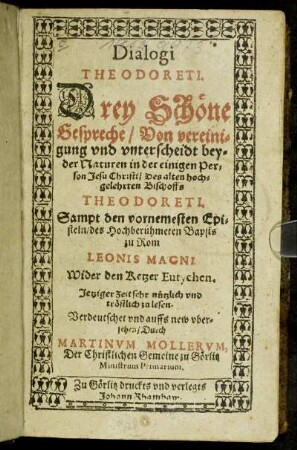 Dialogi
THEODORETI.
Drey Schöne
Gespreche/ Von vereini-
gung vnd vnterscheidt bey-
der Naturen in der einigen Per-
son Jesu Christi/ Des alten hoch-
gelehrten Bischoffs
THEODORETI.
Sampt den vornemesten Epi-
steln/des Hochberühmeten Bapsts
zu Rom
LEONIS MAGNI
Wider den Ketzer Eutychen.
Jetziger Zeit sehr nützlich vnd
tröstlich zu lesen.
Verdeutschet vnd auffs new vber-
sehen/ Durch
MARTINVM MOLLERVM,
Der Christlichen Gemeine zu Görlitz
Ministrum Primarium.
Zu Görlitz druckts vnd verlegts
Johann Rhambaw.